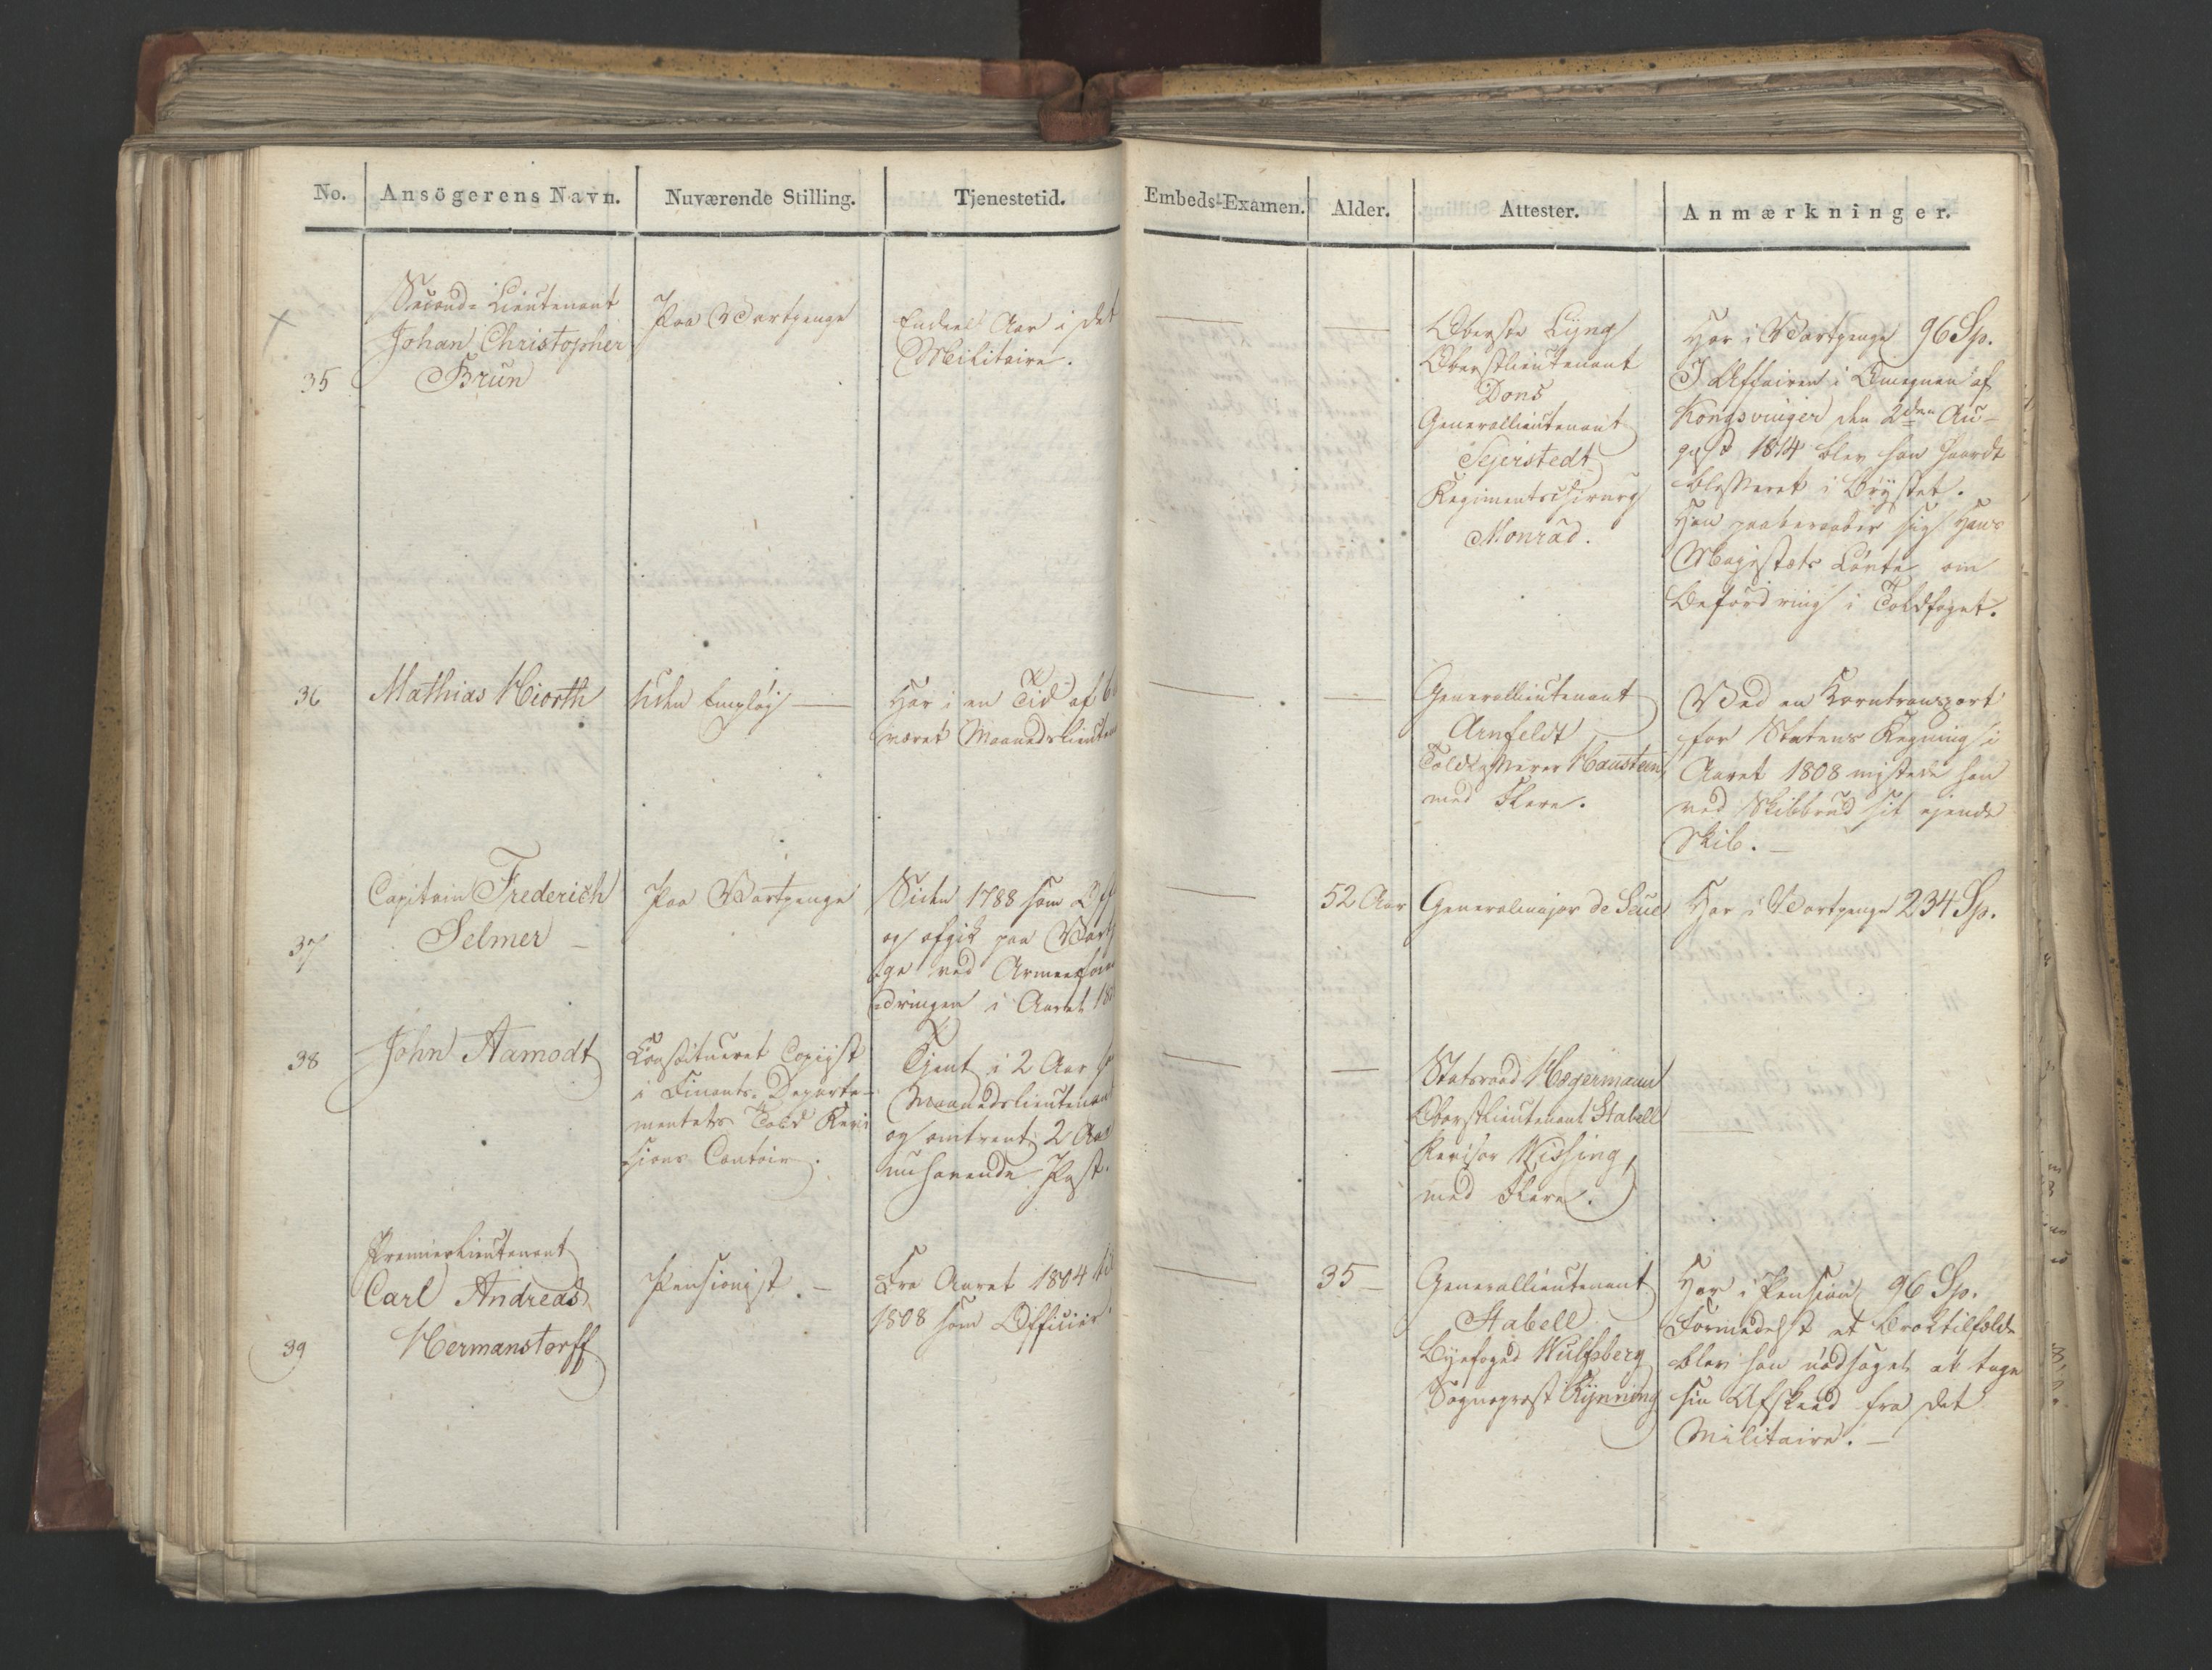 No. Ansögerens Navn. Nuværende Stilling. Tjenestetid. Embeds-Examen. Alder. Attester. Anmærkninger.
35
Second-Lieutenant
Johan Christopher
Brun
Paa Vartpenge
Endeel Aar i det
Militaire.
Oberste Lyng
Oberstlieutenant
Dons
Generallieutenant
Sejerstedt
Regimentschirurg
Monrad.
Har i Vartpenge 96 Sp.
I Affairen i Omegnen af
Kongsvinger den 2den Au-
gust 1814 blev han haardt
blesseret i Brystet.
Han paaberaaber sig Hans
Majestæts Løvte om
Befordring i Toldfaget.
36
Mathias Hiorth
Uden Employ
Har i en Tid af 6
været Maanedslieuten
Generallieutenant
Arnfeldt
Toldkasserer Haustein
med Flere.
Ved en Korntransport
for Statens Regning i
Aaret 1808 mistede han
ved Skibbrud sit ejende
Skib.
37
Capitain Frederich
Selmer
Paa Vartpenge
Siden 1788 som Off
og afgik paa Vart
ge ved Armeefor
dringen i Aaret 18
52 Aar
Generalmajor de Seue
Har i Vartpenge 234 Sp.
38
John Aamodt
Constitueret Copiist
i Finants-Departe-
mentets Told Revi
sions Contoir.
Tjent i 2 Aar so
Maanedslieutenant
og omtrent 2 Aar
nuhavende Post.
Statsraad Hagermann
Oberstlieutenant Stabell
Revisor Wissing,
med Flere.
39
Premierlieutenant
Carl Andreas
Hermanstorff
Pensionist.
Fra Aaret 1804 til
1808 som Officier
35
Generallieutenant
Stabell
Byefoged Wulfsberg
Sognepræst Rynning
Har i Pension 96 Sp.
Formedelst et Broktilfælde
blev han nødsaget at tage
sin Afskeed fra det
Militaire.